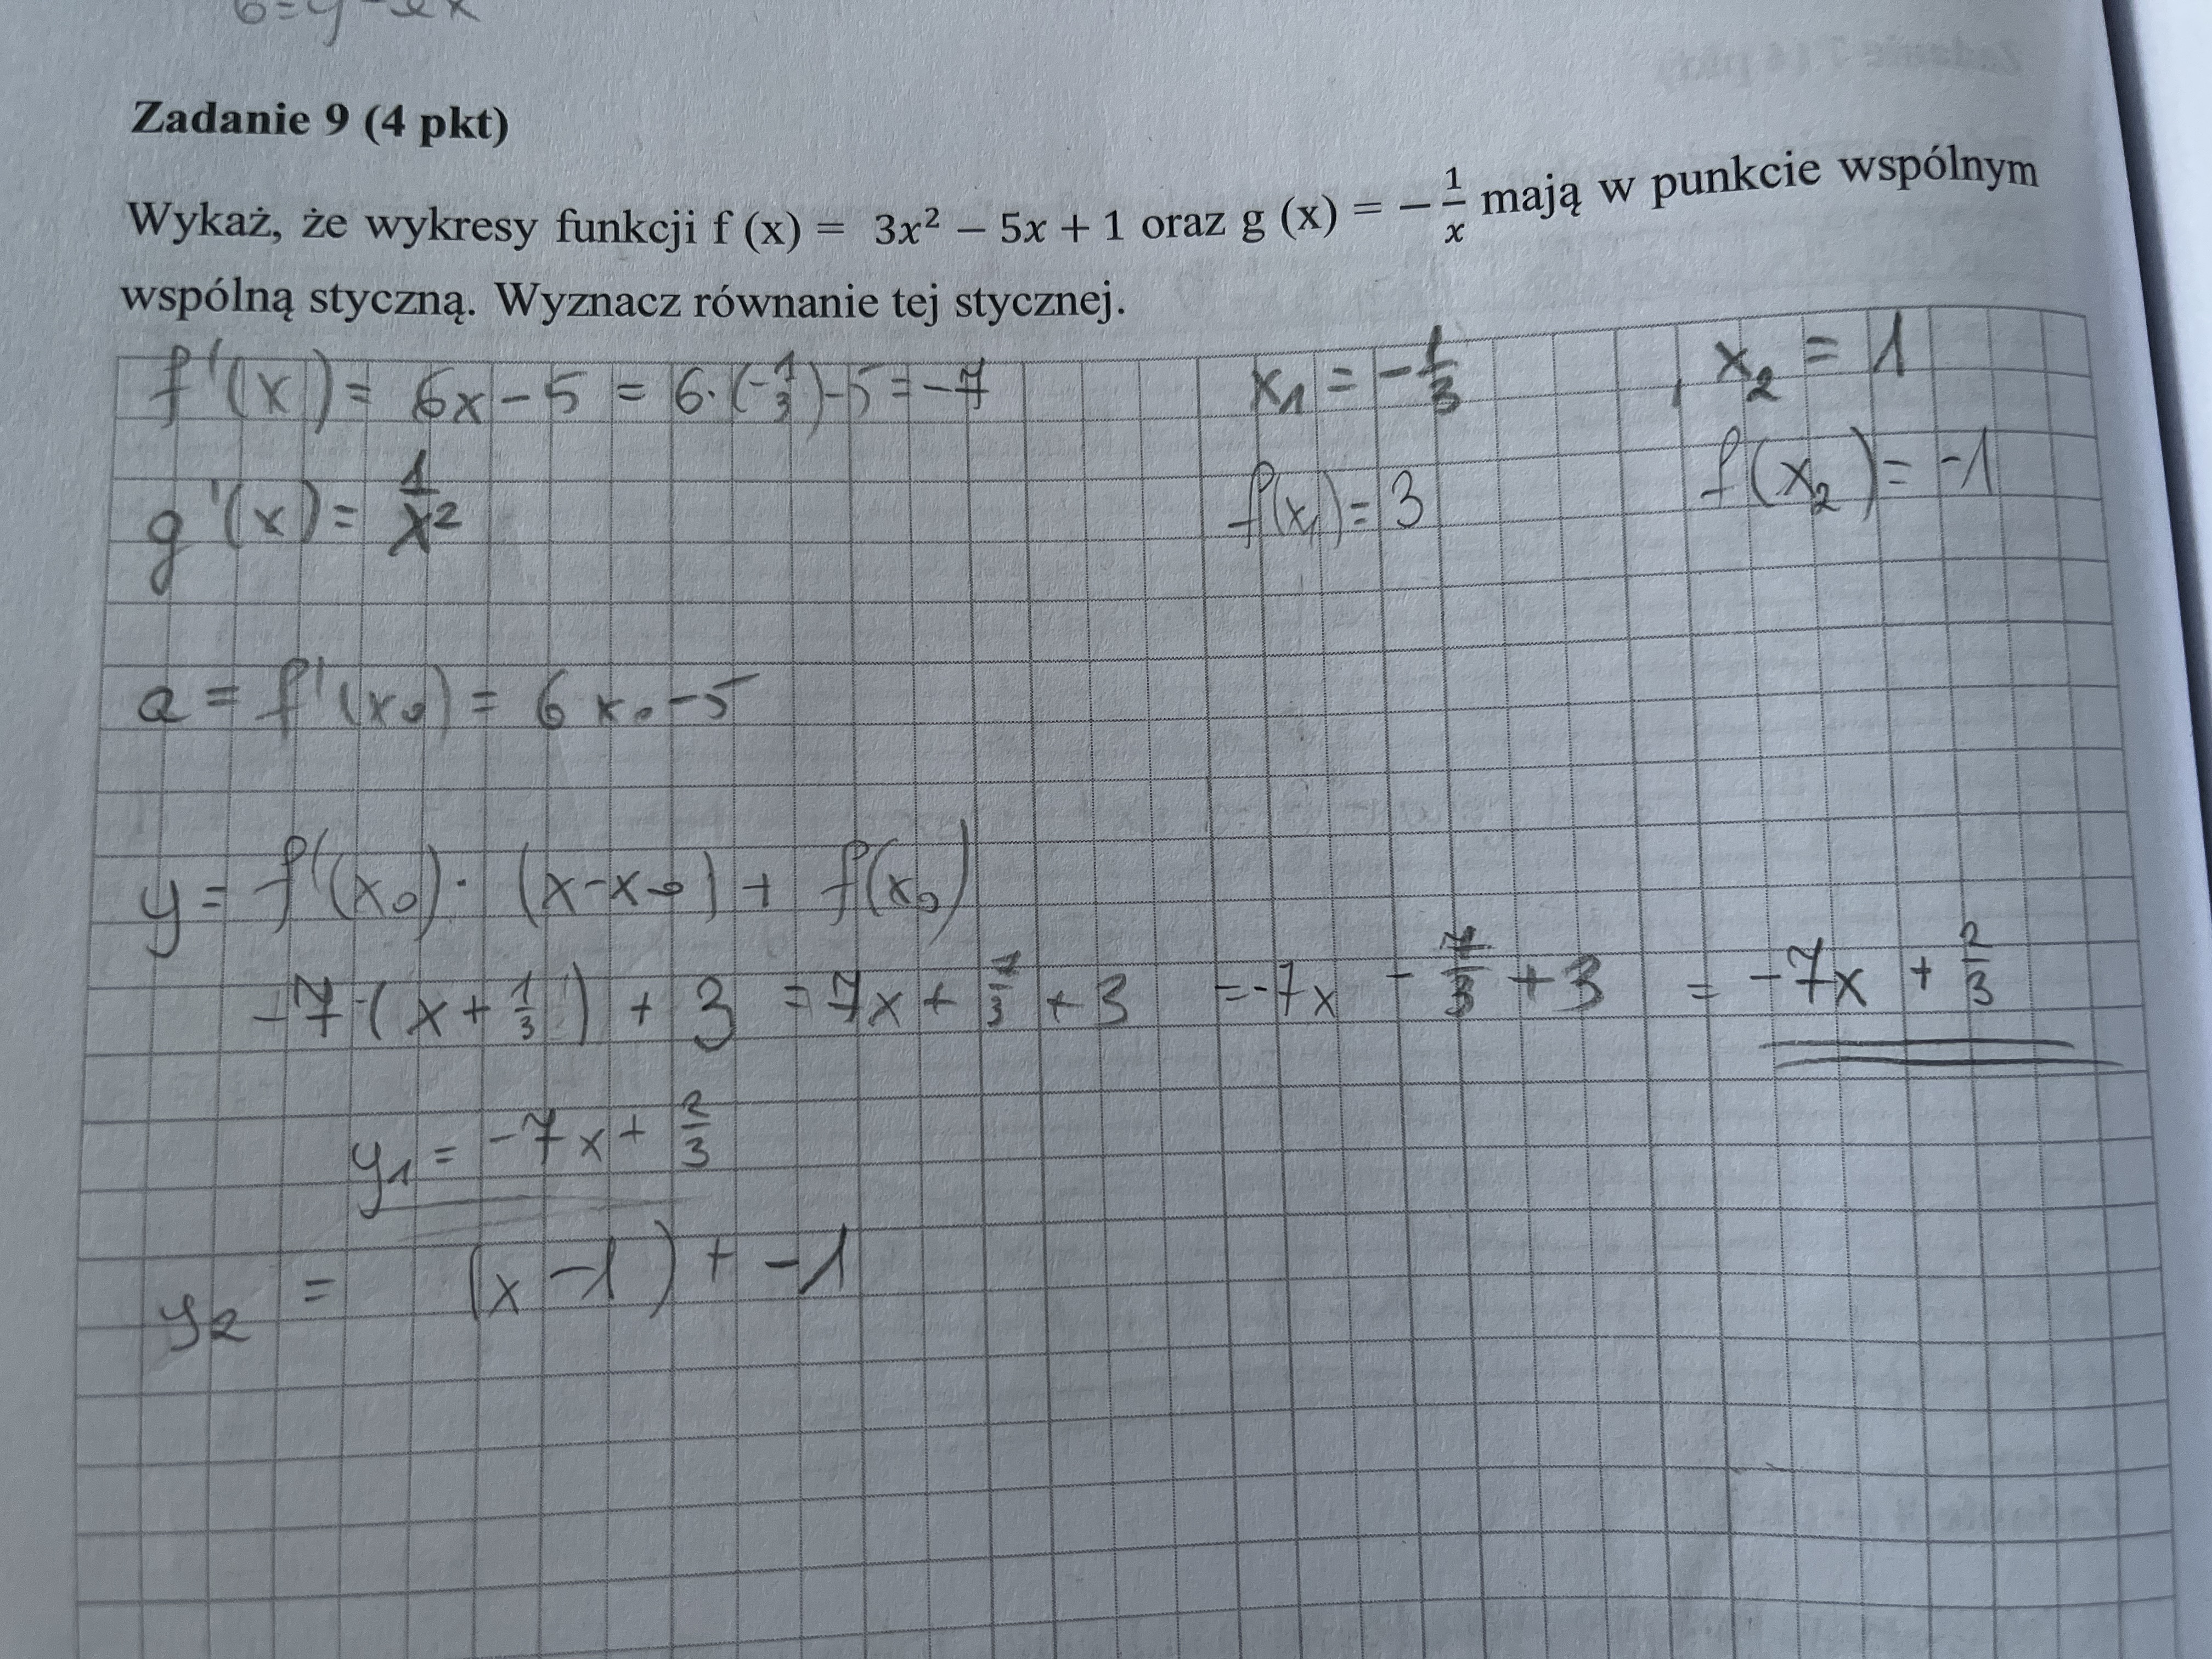 6=y-2x
Zadanie 9 (4 pkt)
Wykaż, że wykresy funkcji f (x) = 3x² − 5x + 1 oraz g (x) = −1/x mają w punkcie wspólnym
wspólną styczną. Wyznacz równanie tej stycznej.
f'(x) = 6x-5 = 6·(-1/3)-5 = -7 x₁ = -1/3 , x₂ = 1
g'(x) = 1/x² f(x₁) = 3 f(x₂) = -1
a = f'(x₀) = 6x₀-5
y = f'(x₀)· (x-x₀) + f(x₀)
-7·(x+1/3) + 3 = 7x + 7/3 + 3 = -7x - 7/3 + 3 = -7x + 2/3
y₁ = -7x + 2/3
y₂ = (x-1) + -1